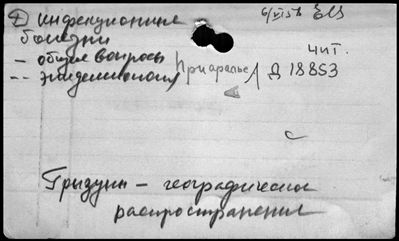 Д инфекционные
болезни
- общие вопросы
-- эпидемиология
Приаралье
чит.
Д 18853
Грызуны - географическое
распространение